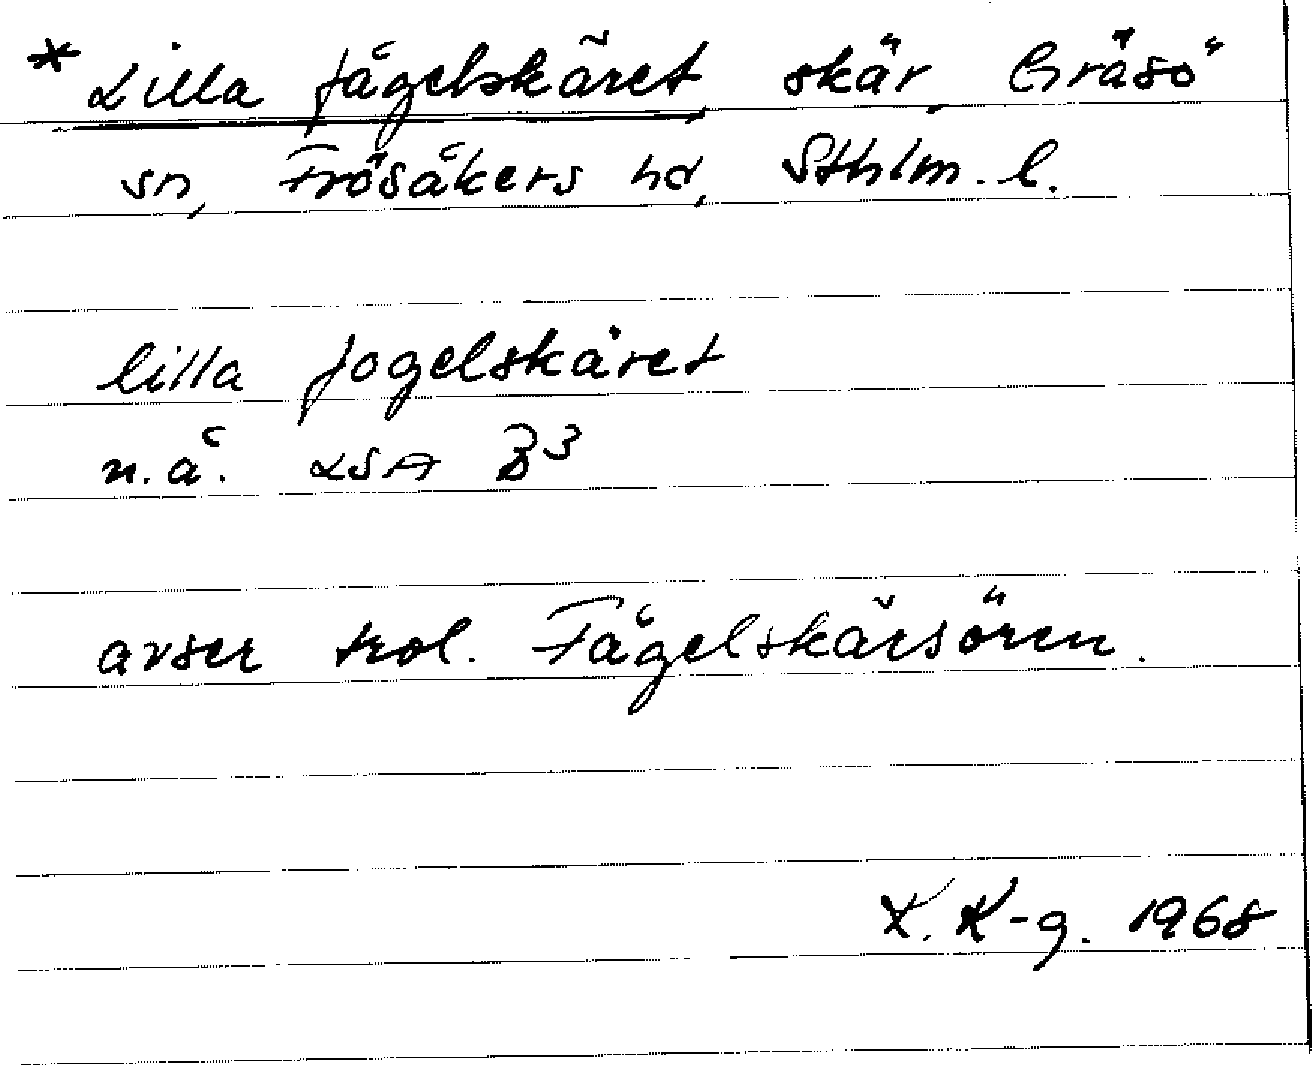 * Lilla fågelskäret, skär, Gräsö
sn, Frösåkers hd, Sthlm. l.
lilla fogelskäret
n.å. LSA B3
avser trol. Fågelskärsören.
K. K-g. 1968